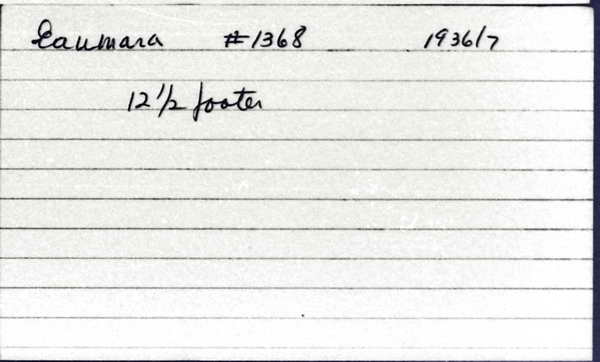 Eaumara #1368 1936/7
12 1/2 footer